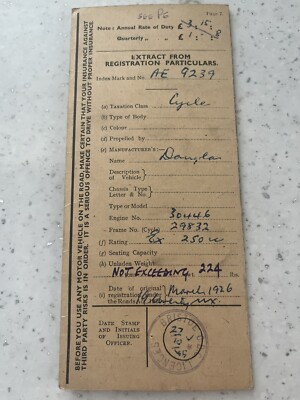 Note: Annual Rate of Duty £ 3 . 15 . -
Quarterly „ £ 1 . - . 8
EXTRACT FROM
REGISTRATION PARTICULARS.
Index Mark and No. AE 9239
(a) Taxation Class Cycle
(b) Type of Body
(c) Colour
(d) Propelled by
(e) MANUFACTURER'S—
Name Douglas
Description
of Vehicle
Chassis Type
Letter & No.
Type or Model
Engine No. 30446
Frame No. (Cycle) 29832
(f) Rating Ex 250cc
(g) Seating Capacity
(h) Unladen Weight
NOT EXCEEDING 224 lbs.
Date of original
(i) registration under March 1926
the Roads
DATE STAMP
AND
INITIALS OF
ISSUING
OFFICER.
BEFORE YOU USE ANY MOTOR VEHICLE ON THE ROAD, MAKE CERTAIN THAT YOUR INSURANCE AGAINST
THIRD PARTY RISKS IS IN ORDER. IT IS A SERIOUS OFFENCE TO DRIVE WITHOUT PROPER INSURANCE